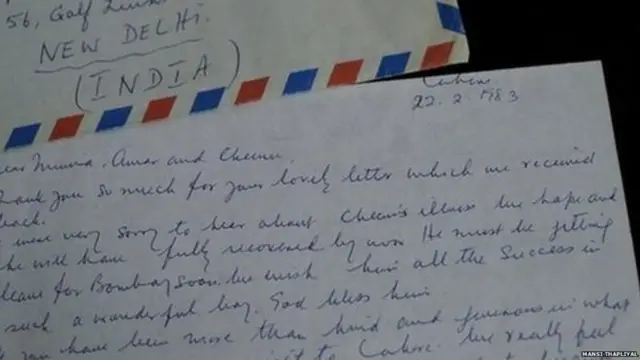 56, Golf
NEW DELHI.
(INDIA)
22.2.1983
ear Munna, Amar and Cheenu,
hank you so much for your lovely letter which we received
back.
were very sorry to hear about Cheenu's illness. We hope and
he will have fully recovered by now. He must be getting
leave for Bombay soon. We wish him all the success in
such a wonderful boy. God bless him
you have been more than kind and generous in what
to Lahore. We really feel
MANSI THAPLIYAL